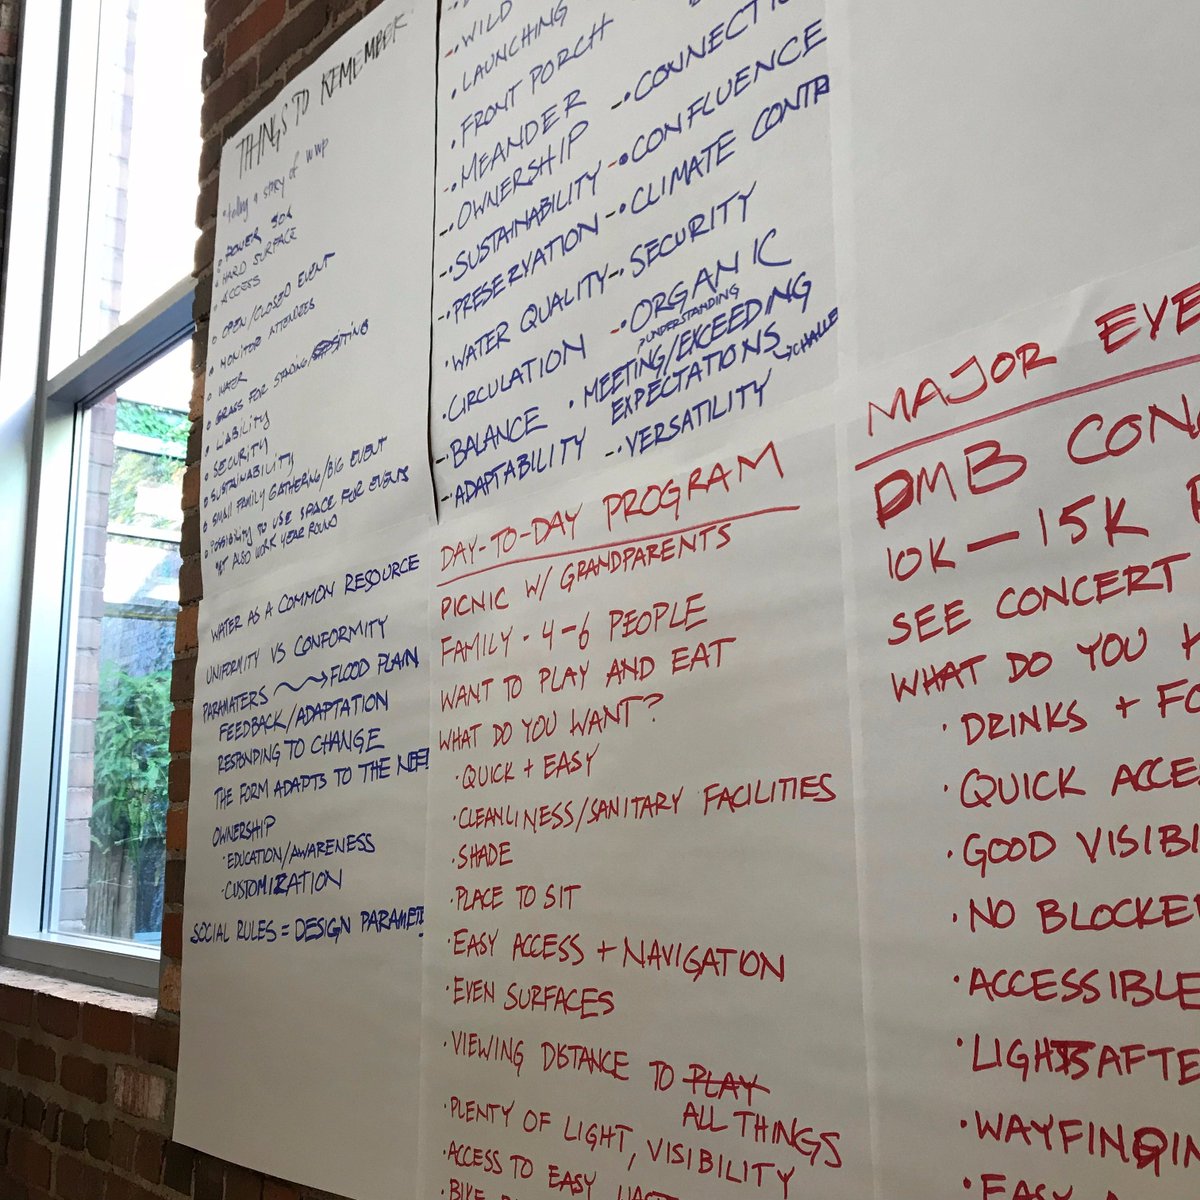 THINGS TO REMEMBER
• telling a story of WWP
○ POWER
○ HARD SURFACE
○ ACCESS
○ OPEN/CLOSED EVENT
○ MONITOR ATTENDEES
○ WATER
○ GRASS FOR STAGING/SITTING
○ LIABILITY
○ SECURITY
○ SUSTAINABILITY
○ SMALL FAMILY GATHERING/BIG EVENT
○ POSSIBILITY TO USE SPACE FOR EVENTS
YET ALSO WORK YEAR ROUND
• WILD
• LAUNCHING
• FRONT PORCH
• MEANDER
• OWNERSHIP
• SUSTAINABILITY
• PRESERVATION
• WATER QUALITY
• CIRCULATION
• BALANCE
• ADAPTABILITY
• CONNECTI
• CONFLUENCE
• CLIMATE CONTR
• SECURITY
• ORGANIC
> UNDERSTANDING
• MEETING/EXCEEDING
EXPECTATIONS → CHALLE
• VERSATILITY
WATER AS A COMMON RESOURCE
UNIFORMITY VS CONFORMITY
PARAMATERS → FLOOD PLAIN
FEEDBACK/ADAPTATION
RESPONDING TO CHANGE
THE FORM ADAPTS TO THE NEE
OWNERSHIP
• EDUCATION/AWARENESS
• CUSTOMIZATION
SOCIAL RULES = DESIGN PARAMET
DAY-TO-DAY PROGRAM
PICNIC W/ GRANDPARENTS
FAMILY - 4-6 PEOPLE
WANT TO PLAY AND EAT
WHAT DO YOU WANT?
• QUICK + EASY
• CLEANLINESS/SANITARY FACILITIES
• SHADE
• PLACE TO SIT
• EASY ACCESS + NAVIGATION
• EVEN SURFACES
• VIEWING DISTANCE TO PLAY
ALL THINGS
• PLENTY OF LIGHT, VISIBILITY
• ACCESS TO EASY
• BIKE
MAJOR EVE
DMB CON
10K — 15K
SEE CONCERT
WHAT DO YOU
• DRINKS + FO
• QUICK ACCE
• GOOD VISIBI
• NO BLOCKE
• ACCESSIBLE
• LIGHTS AFTE
• WAYFINDIN
• EASY